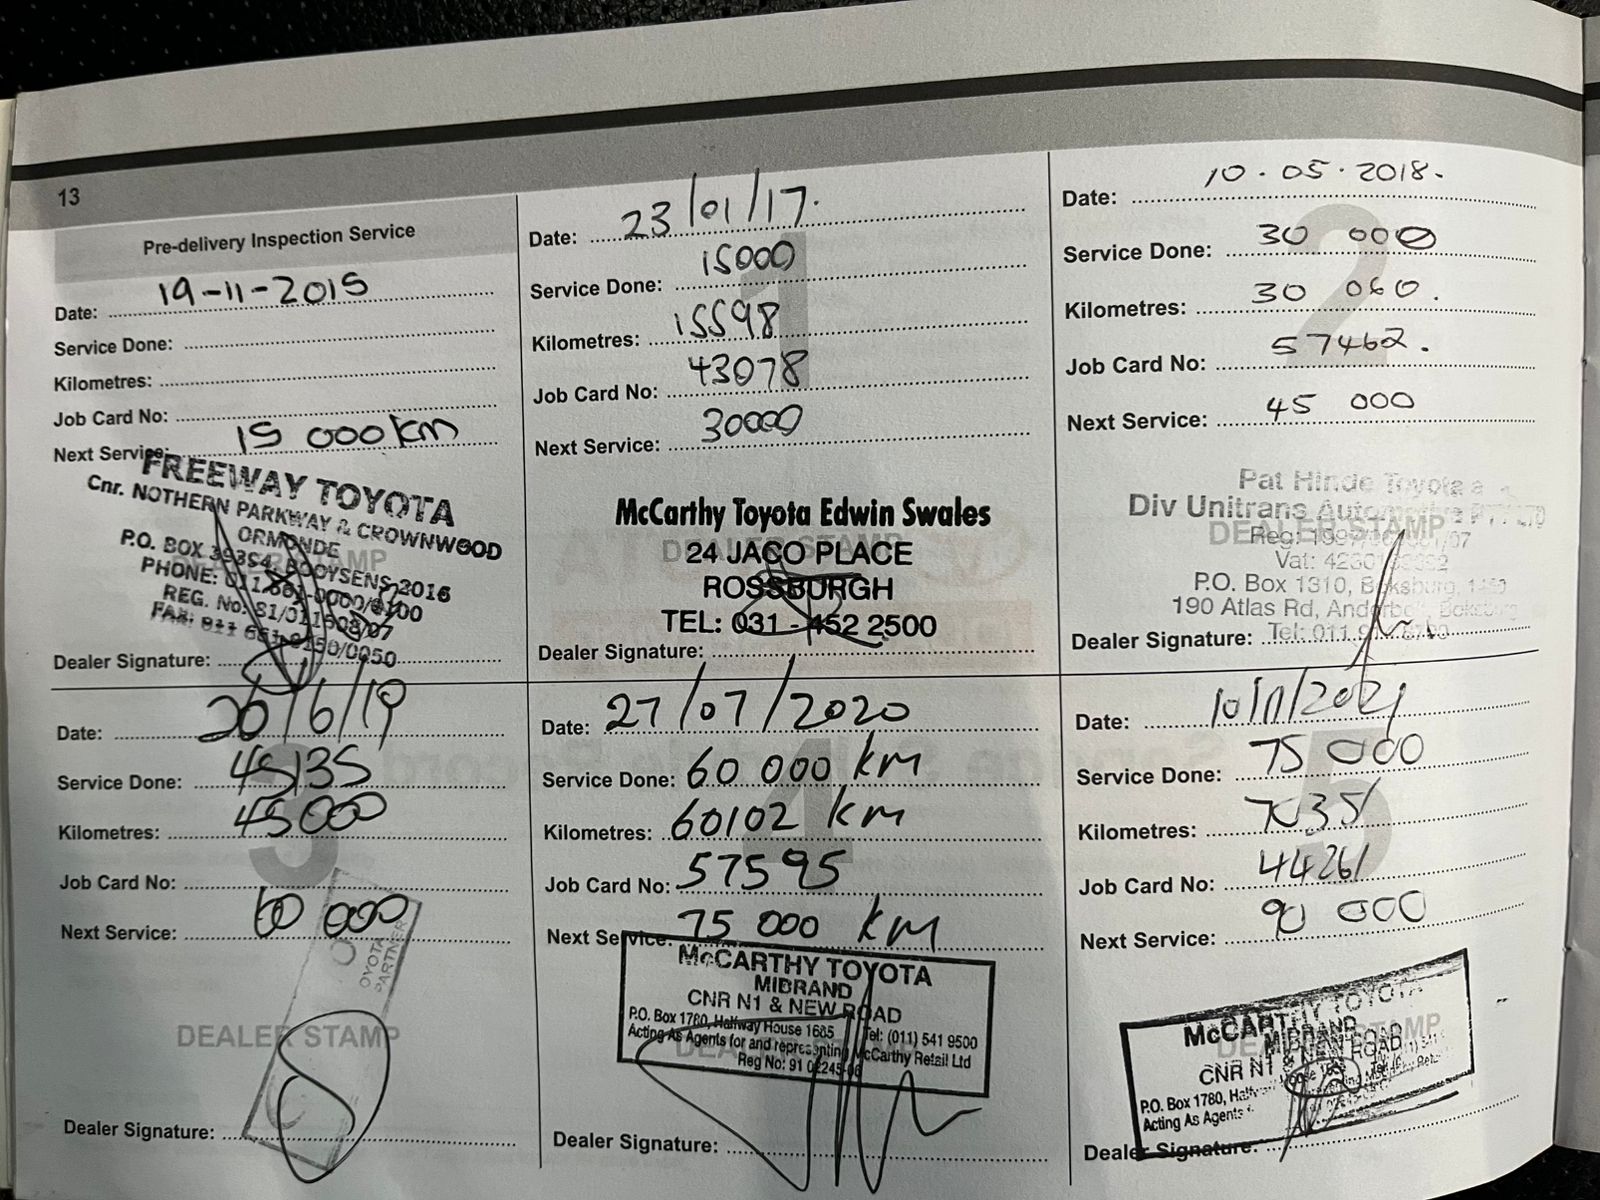 13
Pre-delivery Inspection Service
Date: 19-11-2015
Service Done:
Kilometres:
Job Card No:
Next Service: 15 000 km
FREEWAY TOYOTA
Cnr. NOTHERN PARKWAY & CROWNWOOD
ORMONDE
P.O. BOX 39354, BOOYSENS 2016
PHONE: 011
REG. No: 81/011508/07
FAX: 011 661-0150/0050
DEALER STAMP
Dealer Signature:
Date: 23/01/17.
Service Done: 15000
1
Kilometres: 15598
Job Card No: 43078
Next Service: 30000
McCarthy Toyota Edwin Swales
DEALER STAMP
24 JACO PLACE
ROSSBURGH
TEL: 031 - 452 2500
Dealer Signature:
Date: 10.05.2018.
Service Done: 30 000
2
Kilometres: 30 060.
Job Card No: 57462.
Next Service: 45 000
Pat Hinde Toyota a
Div Unitrans Automotive
DEALER STAMP
Reg:
Vat:
P.O. Box 1310, Boksburg, 1460
190 Atlas Rd, Boksburg
Tel: 011
Dealer Signature:
Date: 20/6/19
Service Done: 45135
3
Kilometres: 45000
Job Card No:
Next Service: 60 000
TOYOTA
PARTNER
DEALER STAMP
Dealer Signature:
Date: 27/07/2020
Service Done: 60 000 km
4
Kilometres: 60102 km
Job Card No: 57595
Next Service: 75 000 km
McCARTHY TOYOTA
MIDRAND
CNR N1 & NEW ROAD
P.O. Box 1780, Halfway House 1685 Tel: (011) 541 9500
Acting As Agents for and representing McCarthy Retail Ltd
Reg No: 91 02245-06
DEALER STAMP
Dealer Signature:
Date: 10/11/2021
Service Done: 75 000
5
Kilometres:
Job Card No: 44261
Next Service: 90 000
McCARTHY TOYOTA
MIDRAND
DEALER STAMP
CNR N1 & NEW ROAD
P.O. Box 1780,
Acting As Agents
Dealer Signature: